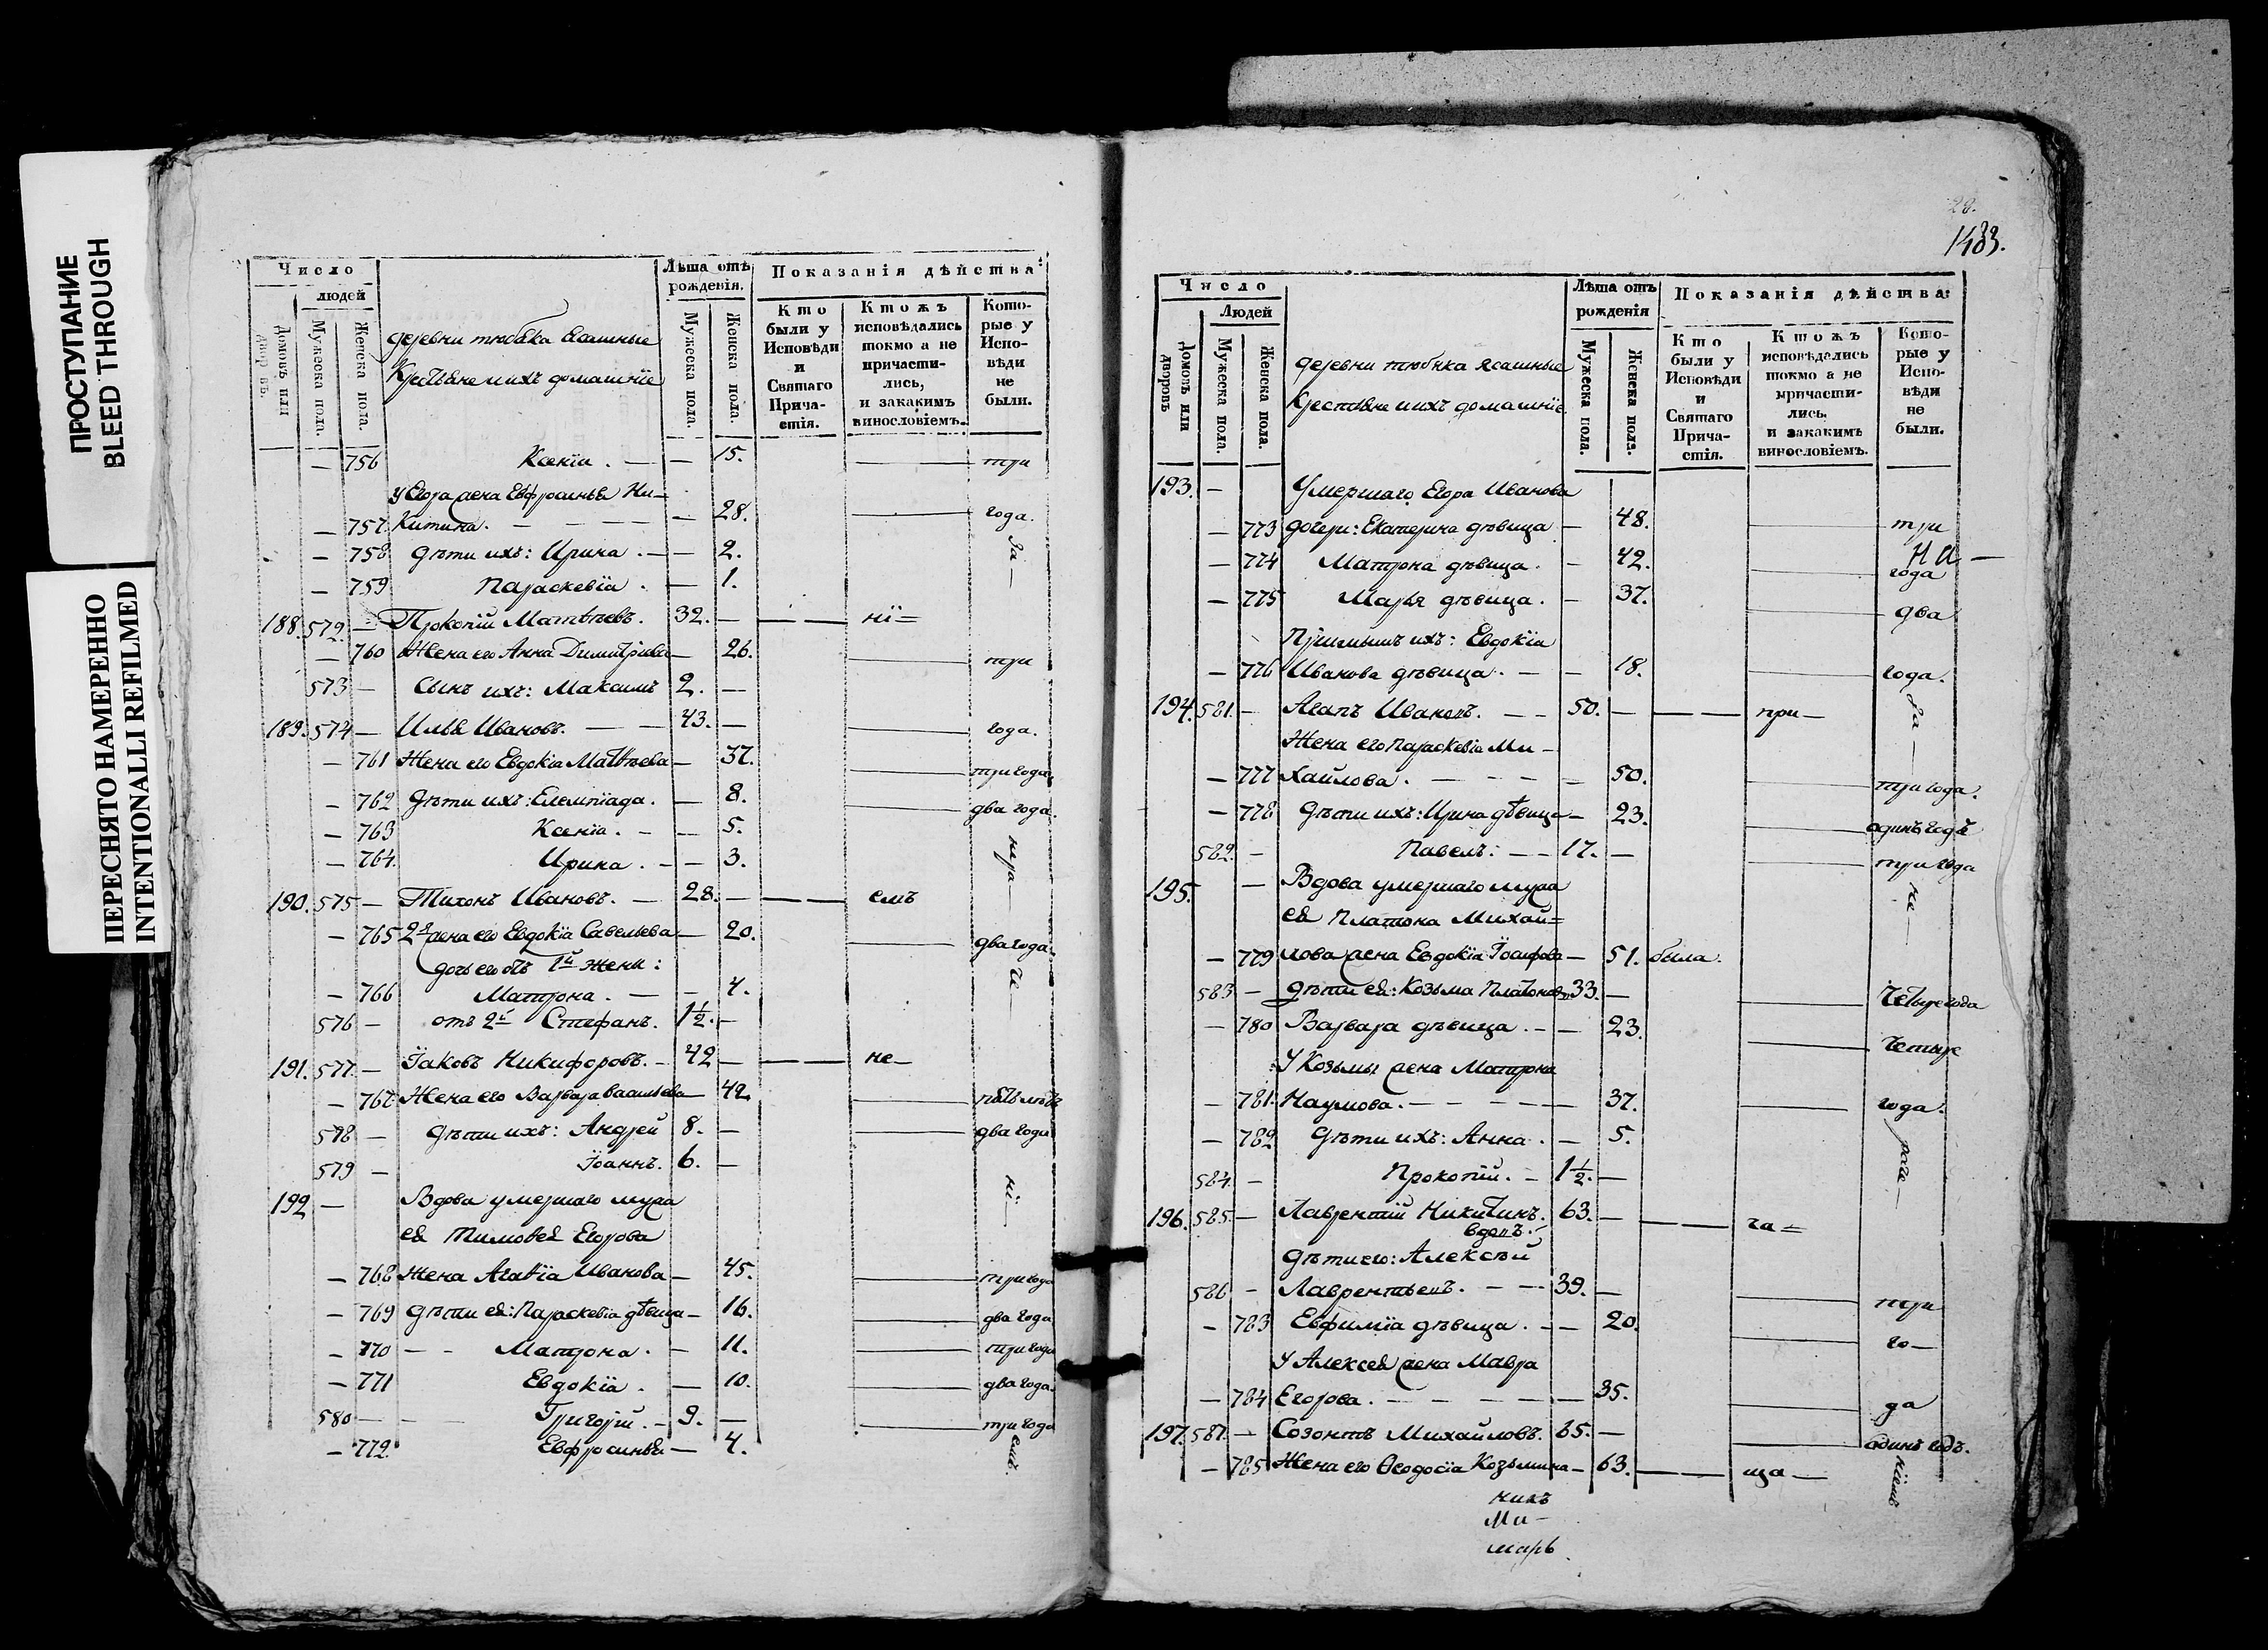 ПРОСТУПАНИЕ
BLEED THROUGH
ПЕРЕСНЯТО НАМЕРЕННО
INTENTIONALLI REFILMED
Число
людей
Домовъ или
Мужеска пола.
Женска пола.
деревни тюбяка Ясашные
Крестьяне и ихъ домашнїе
Лѣта отъ рожденїя.
Мужеска пола.
Женска пола.
Показанїя дѣйства:
Кто были у Исповѣди и Святаго Прича-стїя.
Ктожъ исповѣдались токмо а не причасти-лись, и закакимъ винословїемъ.
Кото-рые у Испо-вѣди не были.
— 756 Ксенїя. — — 15. три
у Егора жена Евфросинья Ни-
— 757. Китина. — — — — 28. года.
— 758 дѣти ихъ: Ирина. — — 2. За—
— 759 Параскевїа. — 1.
188. 572. — Прокопїй Матвѣевъ. 32. — — — нї=
— 760 Жена его Анна Димитрїева — 26. три
573 — Сынъ ихъ: Максимъ 2. —
189. 574 — Илья Ивановъ. — — 43. — года.
— 761 Жена его Евдокїа Матвѣева — 37. три года
— 762 дѣти ихъ: Елемпїада. — 8. два года.
— 763 Ксенїа. — — 5.
— 764. Ирина. — — 3. нера—
190. 575 — Тихонъ Ивановъ. — 28. — — — емъ
— 765 2я жена его Евдокїа Савельева — 20. два года.
дочь его отъ 1й жены:
— 766 Матрона. — — 4. че—
576 — отъ 2й Стефанъ. 1½. —
191. 577. — Їаковъ Никифоровъ. — 42 — — — не—
— 767. Жена его Варвара Васильева — 42. пять лѣтъ
578 — дѣти ихъ: Андрей 8. — два года
579 — Їоаннъ. 6. —
192 — Вдова умершаго мужа
ея Тимофея Егорова нї—
— 768 жена Агафїа Иванова — 45. три года
— 769 дѣти ея: Параскевїа дѣвица — 16. два года
— 770 — — Матрона. — 11. три года
— 771 Евдокїа. — 10. два года.
580 — — — Григорїй. — 9. — три года
— 772. Евфросинья — 4. емъ.
28.
Число
Людей
Домовъ или дворовъ
Мужеска пола.
Женска пола.
деревни тюбяка Ясашные
Крестьяне и ихъ домашнїе.
Лѣта отъ рожденїя
Мужеска пола.
Женска пола.
Показанїя дѣйства:
Кто были у Исповѣди и Святаго Прича-стїя.
Ктожъ исповѣдались токмо а не причасти-лись, и закакимъ винословїемъ.
Кото-рые у Испо-вѣди не были.
193. — Умершаго Егора Иванова
— 773 дочери: Екатерина дѣвица — 48. три
— 774 Матрона дѣвица. — 42. года
— 775 Марья дѣвица. — 37. два
Прїимышъ ихъ: Евдокїа
— 776 Иванова дѣвица. — — 18. года.
194. 581. — Агапъ Ивановъ. — — 50. — — — при—
Жена его Параскевїа Ми- За—
— 777 хайлова. — — — — 50. три года.
— 778 Дѣти ихъ: Ирина дѣвица — 23. одинъ годъ
582. — Павелъ: — — 17. — три года
195. — Вдова умершаго мужа
ея Платона Михай= не—
— 779 лова жена Евдокїа Їосифова — 51. была.
583 — дѣти ея: Козьма Платоновъ. 33. — Четыре года
— 780 Варвара дѣвица. — — 23. Четыре
У Козьмы жена Матрона
— 781. Наумова. — — — — 37. года.
— 782 Дѣти ихъ: Анна. — 5.
584. — Прокопїй. — 1½. —
196. 585. — Лаврентїй Никитинъ. 63. — — — ча=
вдовъ.
Дѣти его: Алексѣй
586 — Лаврентьевъ. — — 39. — три
— 783 Евфимїа дѣвица. — — 20. го—
У Алексея жена Мавра
— 784 Егорова. — — — — 35. да
197. 587. — Созонтъ Михайловъ. 65. — одинъ годъ.
— 785 Жена его Ѳеодосїа Козьмина — 63. — — ща— нїемъ